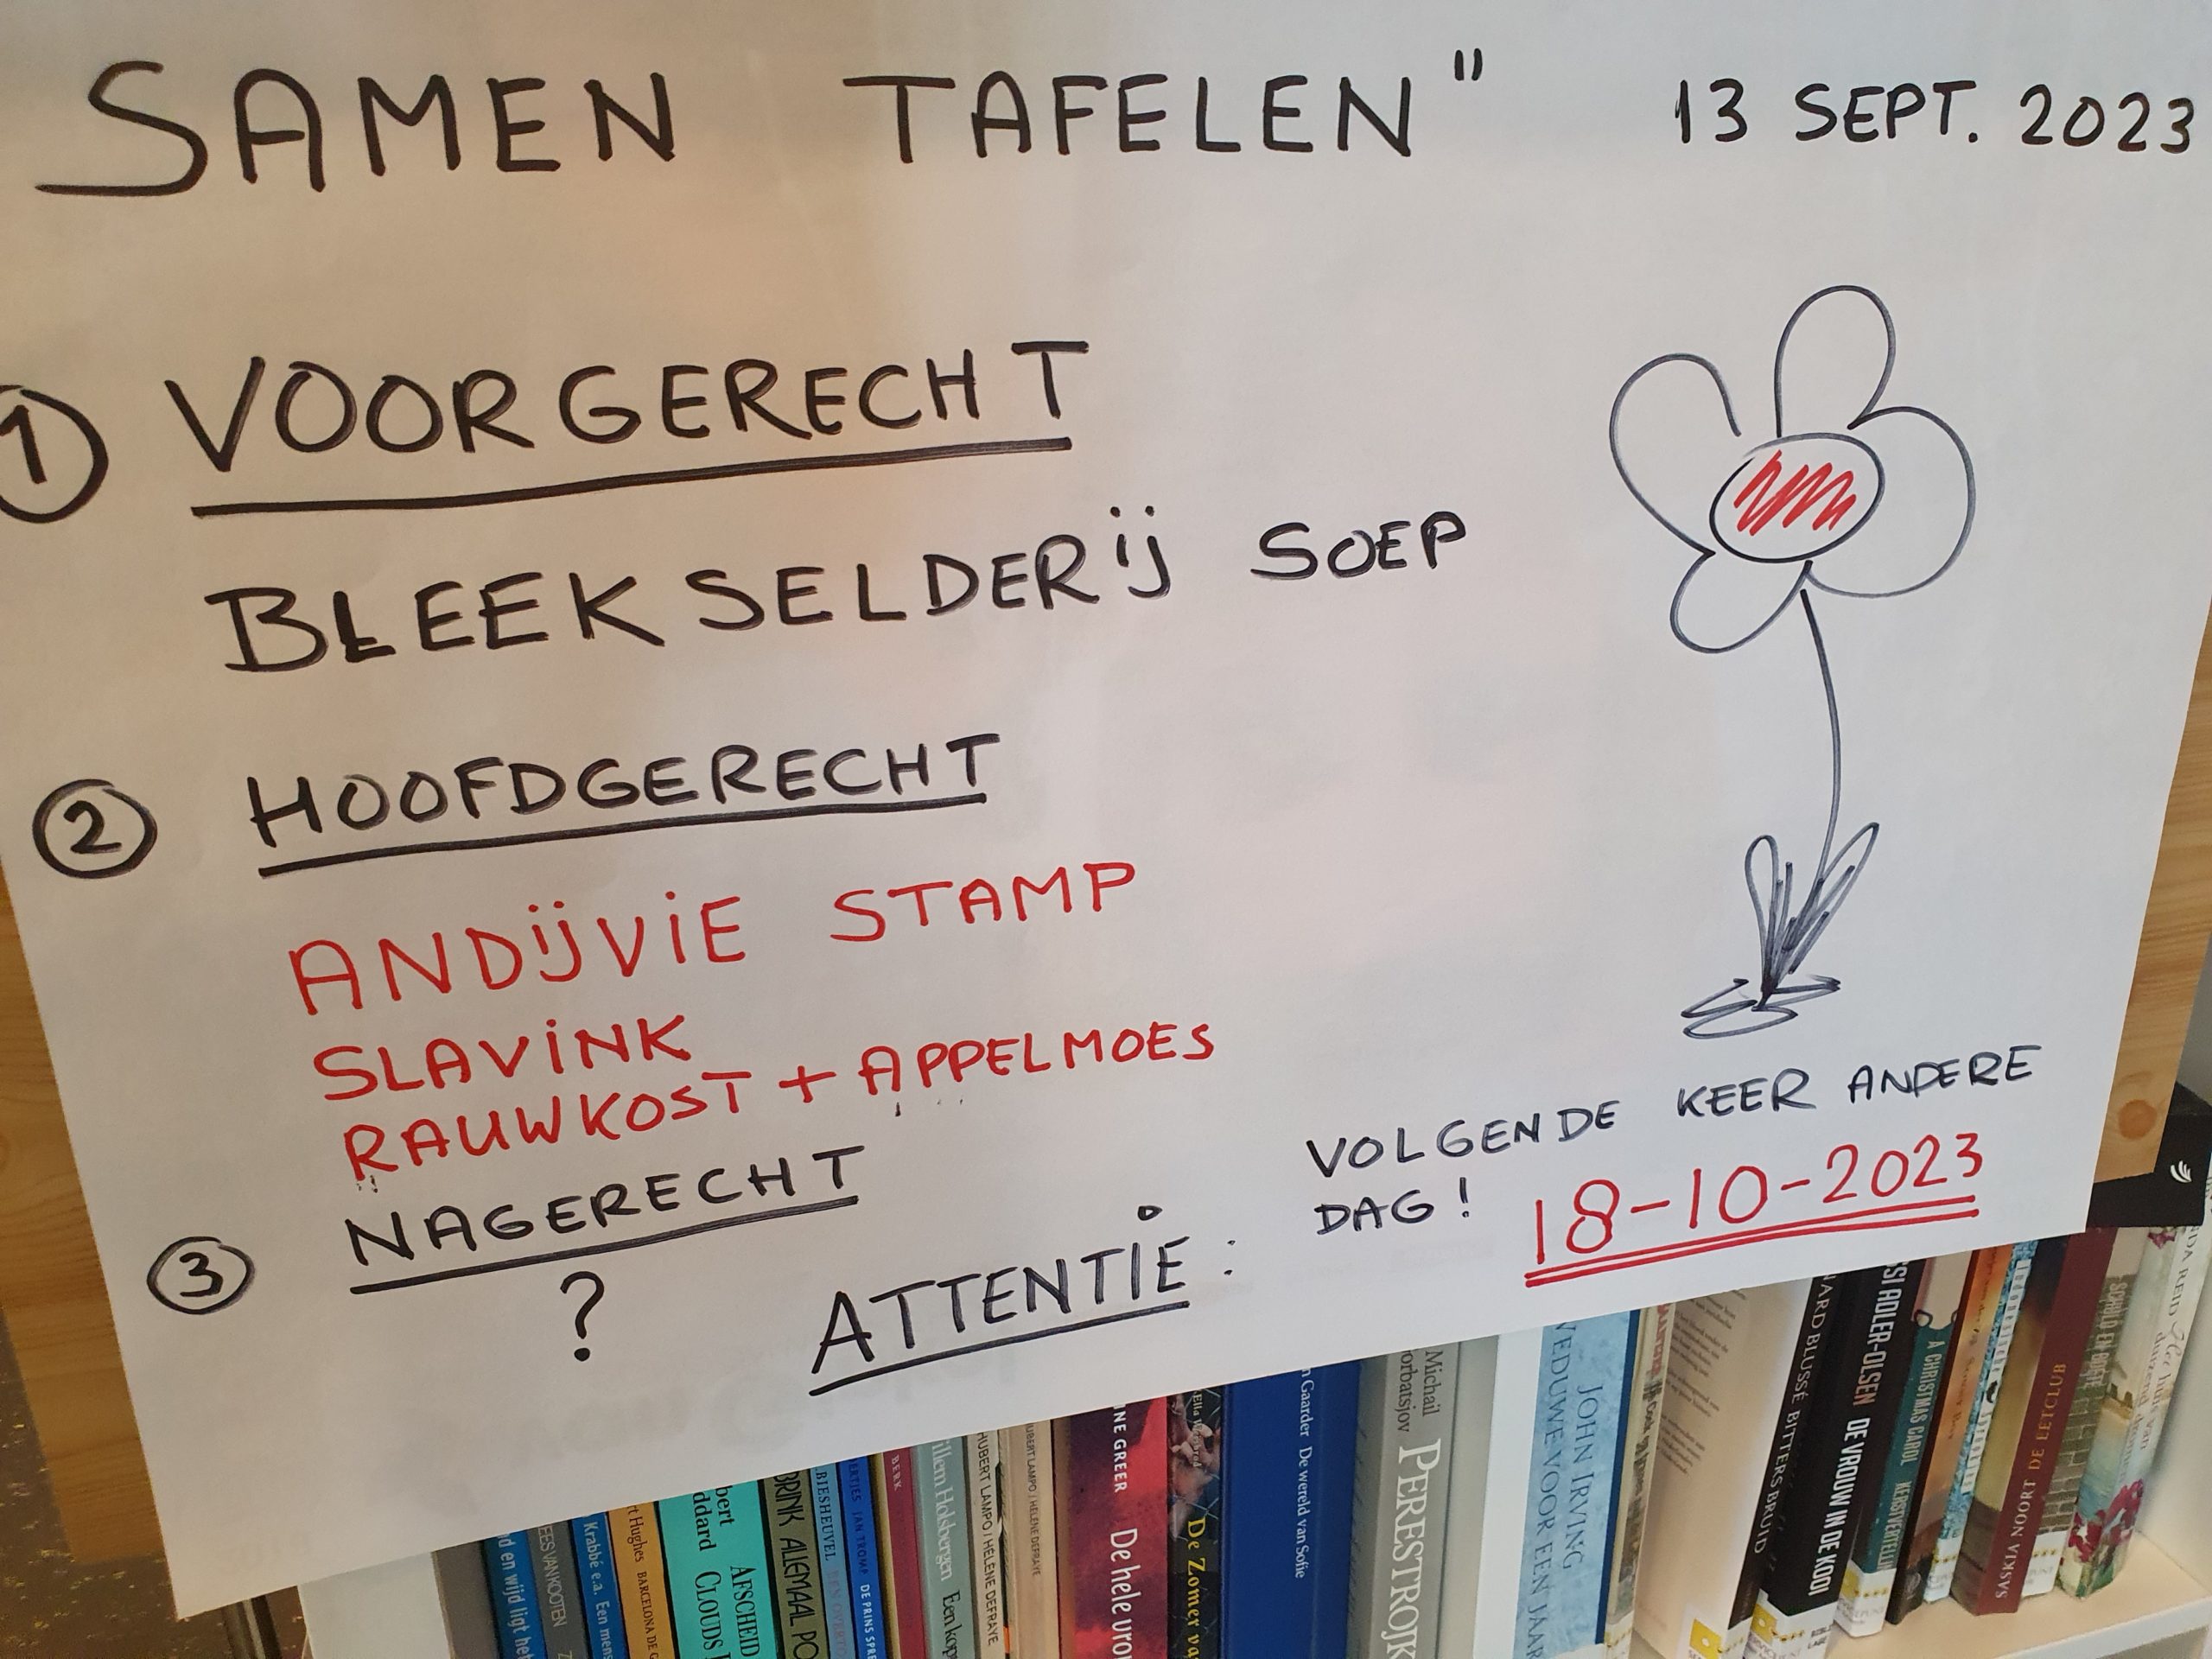 SAMEN TAFELEN" 13 SEPT. 2023
1 VOORGERECHT
BLEEKSELDERIJ SOEP
2 HOOFDGERECHT
ANDIJVIE STAMP
SLAVINK
RAUWKOST + APPELMOES
3 NAGERECHT
?
ATTENTIE :
VOLGENDE KEER ANDERE
DAG! 18-10-2023
en wijd ligt het
Krabbé e.a. Een mens
Hughes BARCELONA DE
AFSCHEID
CLOUDS
BRINK ALLEMAAL PO
BIESHEUVEL
JAN TROMP DE PRINS SPRE
BERK
Willem Holsbergen Een kop
HUBERT LAMPO / HÉLÈNE DEFRAYE
HUBERT LAMPO / HÉLÈNE DEFRAYE
GREER De hele vro
De Zomer va
Gaarder De wereld van Sofie
Michail
PERESTROJK
JOHN IRVING
WEDUWE VOOR EEN JAAR
BLUSSÉ BITTERS BRUID
ADLER-OLSEN DE VROUW IN DE KOOI
A CHRISTMAS CAROL KERSTVERTELLI
SASKJA NOORT DE EETCLUB
SCHULD EN BOETE
REID